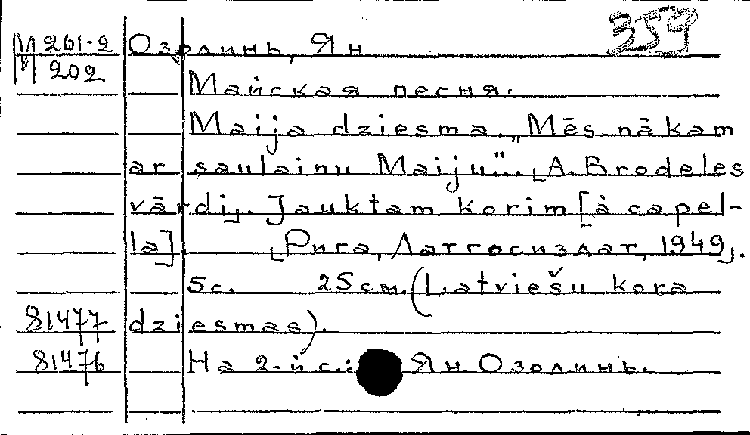 359
М 261-2 Озолинь, Ян
М 202
Майская песня.
Maija dziesma. „Mēs nākam
ar saulainu Maiju”. [A. Brodeles
vārdi]. Jauktam korim [à capel-
la]. [Рига, Латгосиздат, 1949].
5с. 25см. (Latviešu kora
81477 dziesmas).
81476 На 2-й с.: Ян Озолинь.